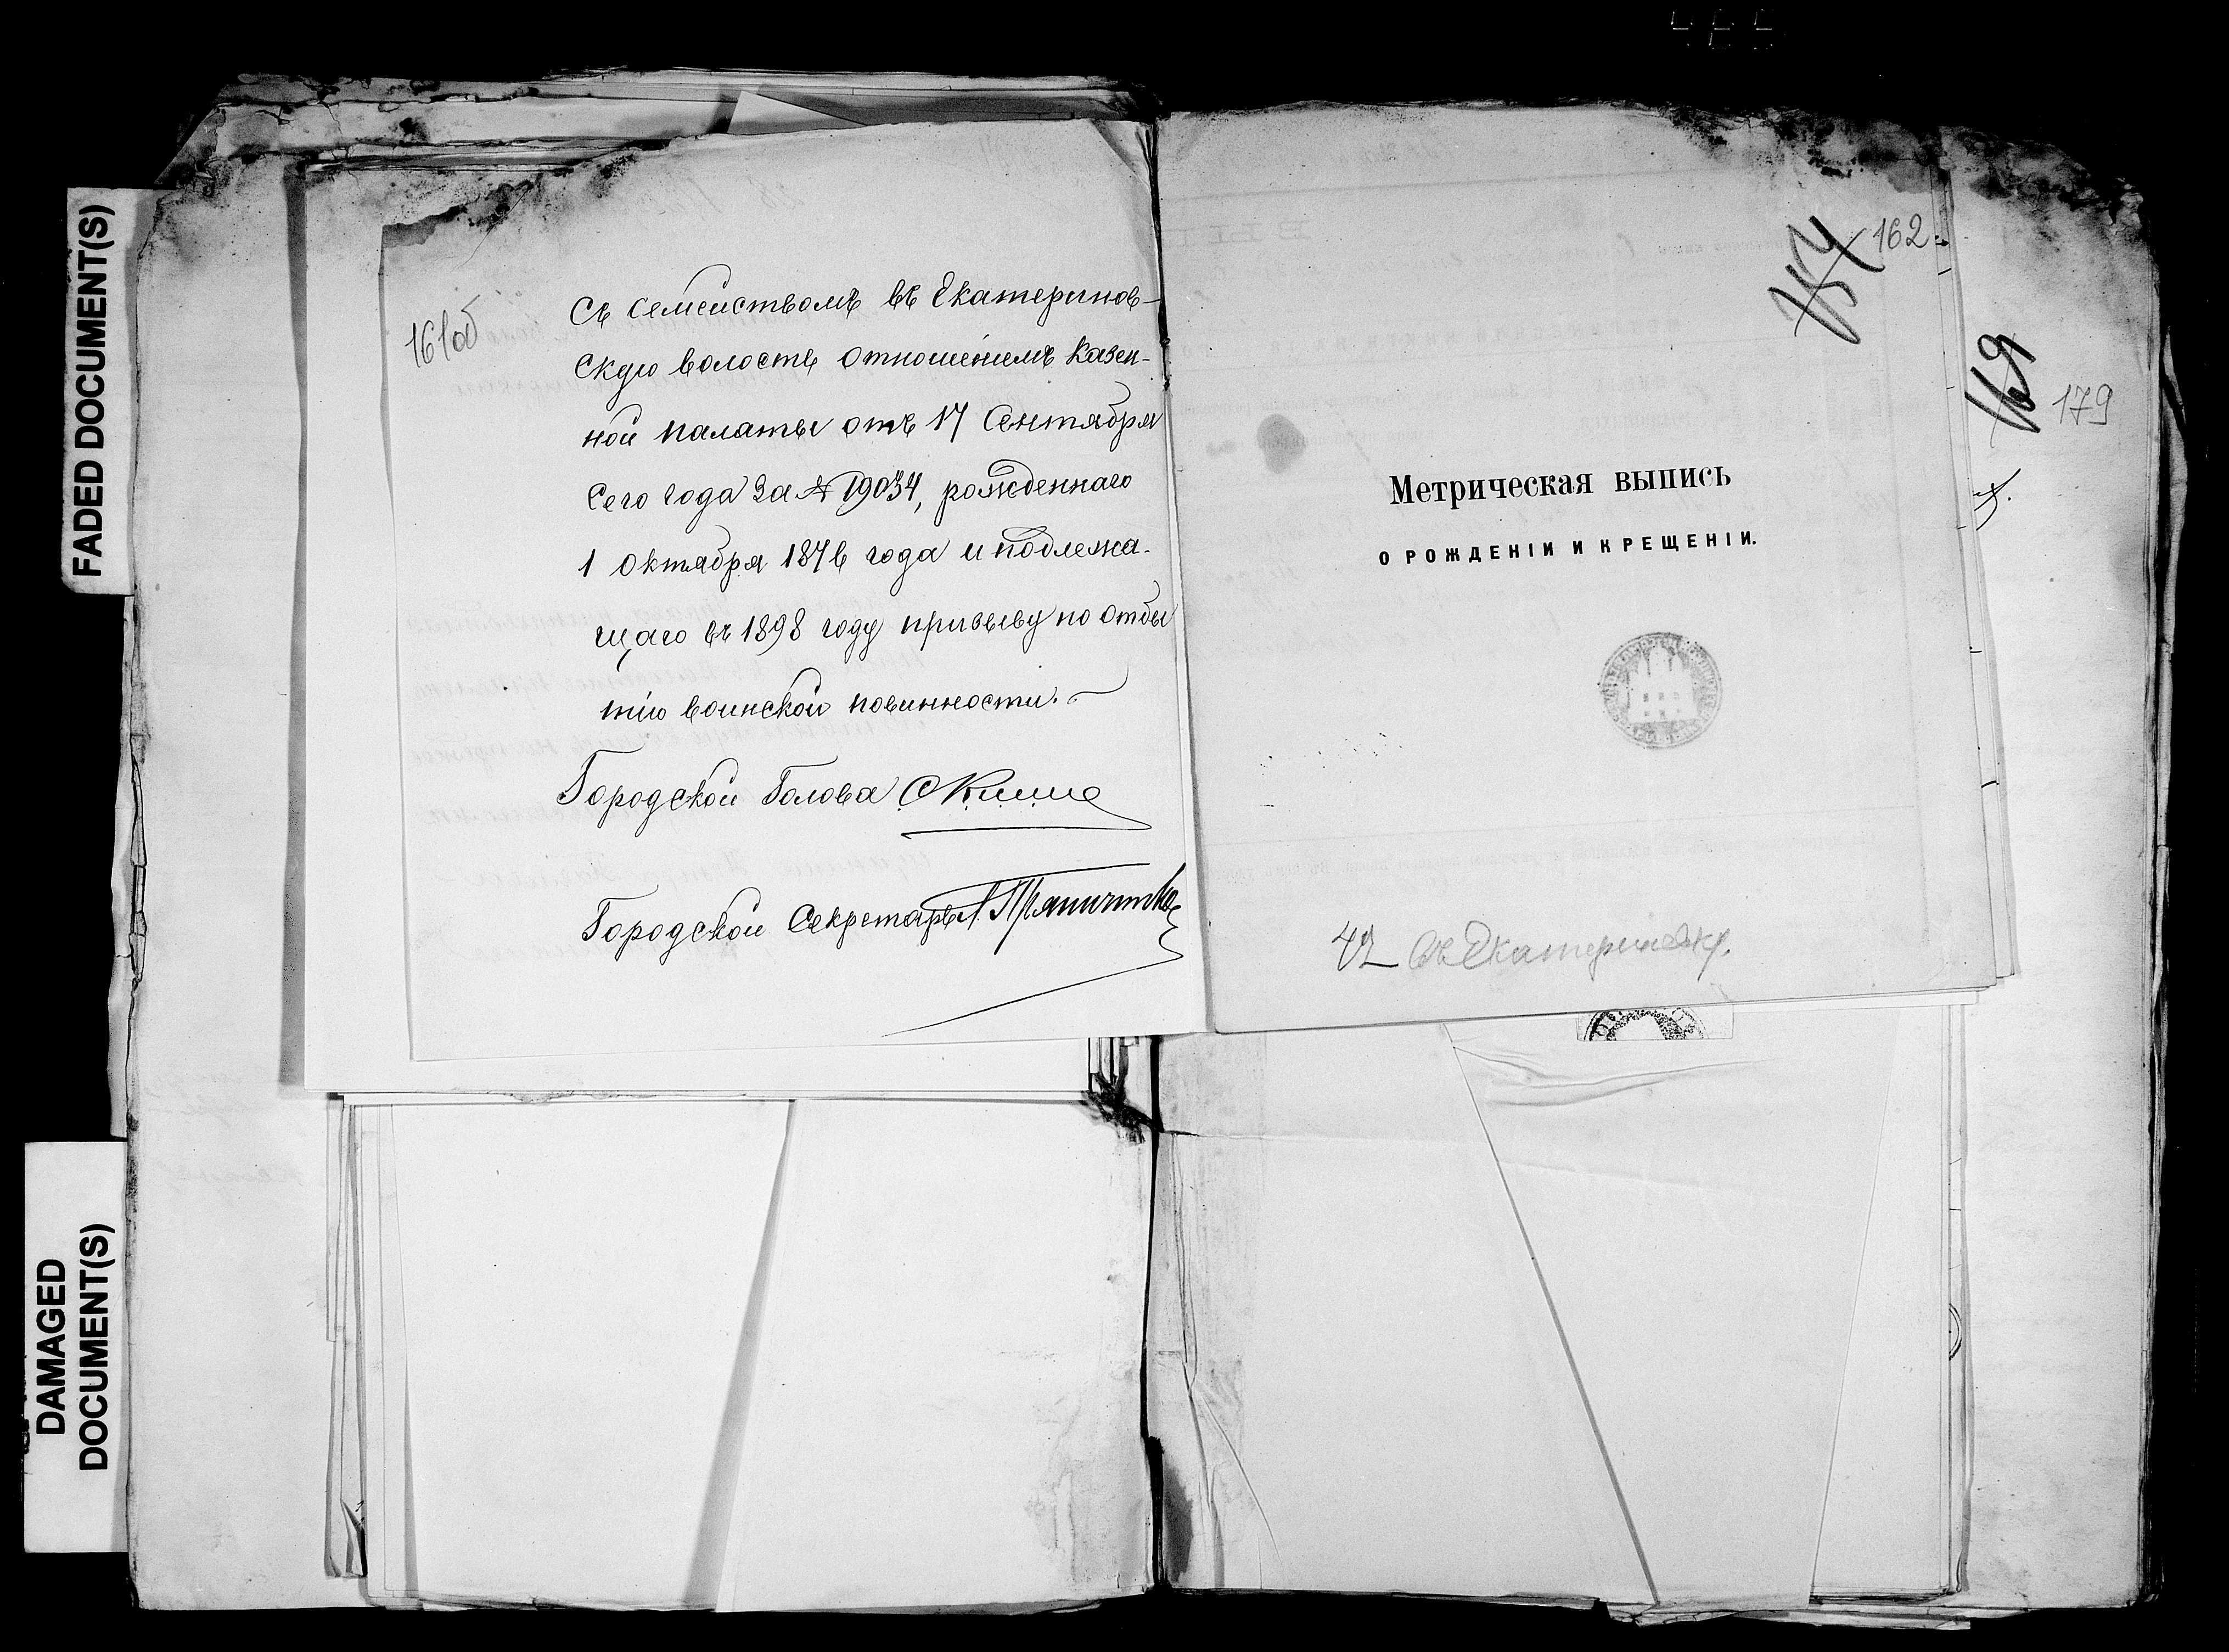 FADED DOCUMENT(S)
DAMAGED
DOCUMENT(S)
161об
Съ семействомъ въ Екатеринов-
скую волость отношеніемъ Казен-
ной палаты отъ 17 Сентября
сего года за № 19034, рожденнаго
1 Октября 1876 года и подлежа-
щаго въ 1898 году призыву по отбы
тію воинской повинности.
Городской Голова
Городской Секретарь
162
169
179
Метрическая выпись
О РОЖДЕНІИ И КРЕЩЕНІИ.
42 въ Екатериновку.